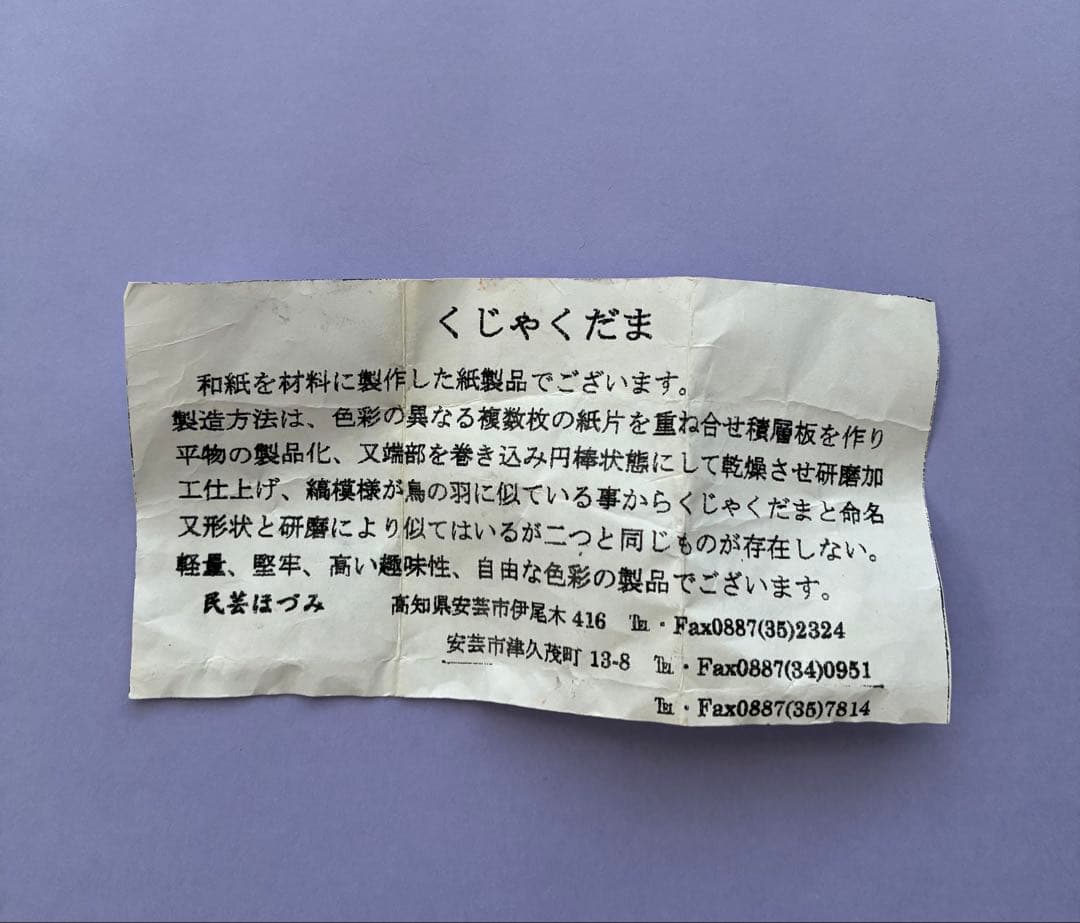 くじゃくだま
和紙を材料に製作した紙製品でございます。
製造方法は、色彩の異なる複数枚の紙片を重ね合せ積層板を作り
平物の製品化、又端部を巻き込み円棒状態にして乾燥させ研磨加
工仕上げ、縞模様が鳥の羽に似ている事からくじゃくだまと命名
又形状と研磨により似てはいるが二つと同じものが存在しない。
軽量、堅牢、高い趣味性、自由な色彩の製品でございます。
民芸ほづみ 高知県安芸市伊尾木 416 ℡・Fax0887(35)2324
安芸市津久茂町 13-8 ℡・Fax0887(34)0951
℡・Fax0887(35)7814